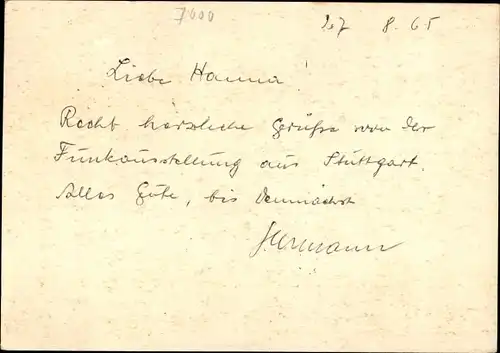 7000
27 8. 65
Liebe Hanna!
Recht herzliche Grüße von der
Funkausstellung aus Stuttgart.
Alles Gute, bis demnächst
Hermann